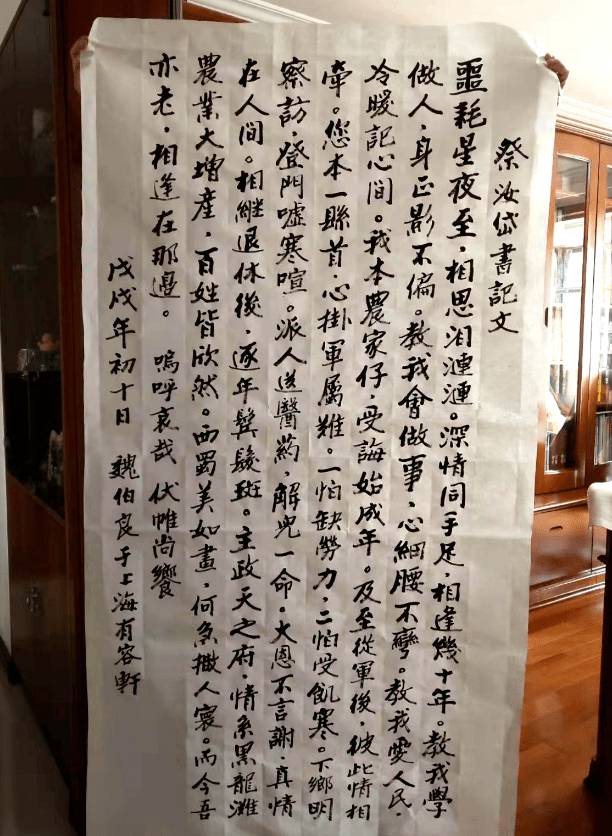 祭汝岱書記文
噩耗星夜至，相思泪漣漣。深情同手足，相逢幾十年。教我學
做人，身正影不偏。教我會做事，心細腰不彎。教我愛人民，
冷暖記心间。我本農家仔，受誨始成年。及至從軍後，彼此情相
牵。您本一縣首，心掛軍屬難。一怕缺勞力，二怕受飢寒。下鄉明
察訪，登門噓寒喧。派人送醫药，解兜一命。大恩不言謝，真情
在人间。相繼退休後，逐年鬓髮斑。主政天之府，情系黑龍灘
農業大增産，百姓皆欣然。西蜀美如畫，何急撒人寰。而今吾
亦老，相逢在那邊。 嗚呼哀哉 伏惟尚饗
戊戌年初十日 魏伯良于上海有容軒